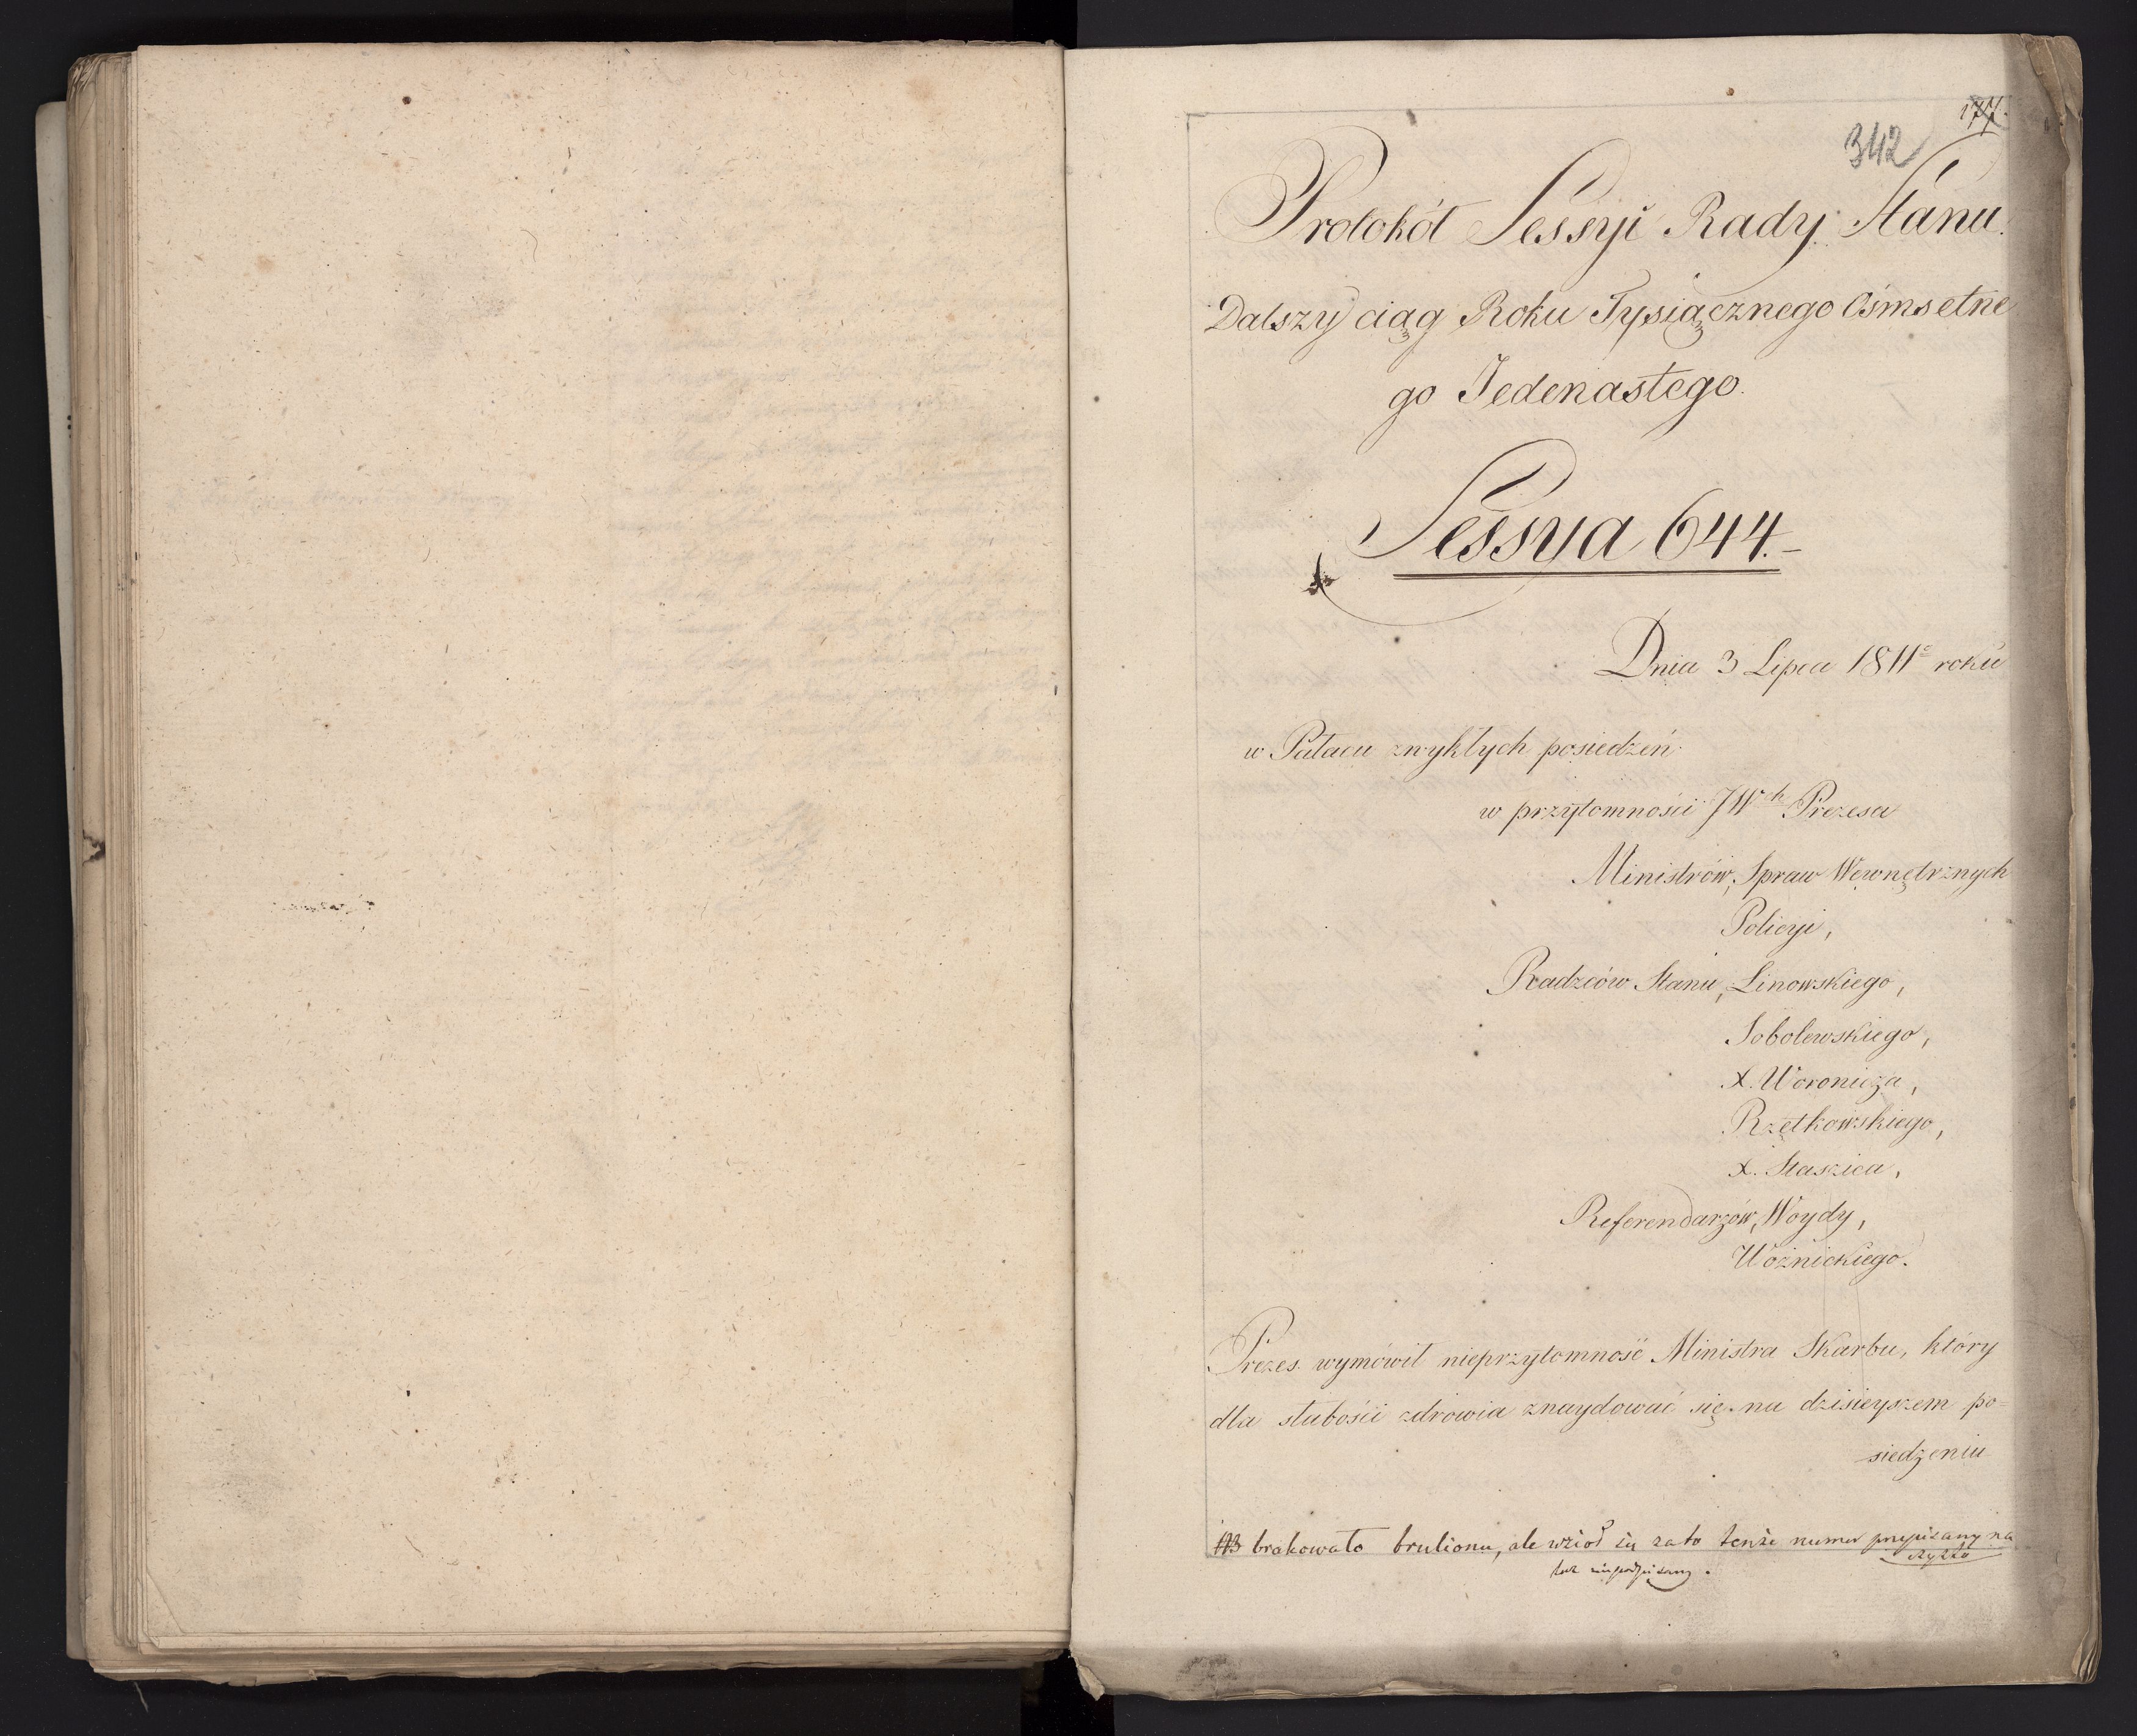 342
Protokół Sessyi Rady Stanu.
Dalszy ciąg Roku Tysiącznego Ośmsetne
go Jedenastego.
Sessya 644.
Dnia 3 Lipca 1811º roku
w Pałacu zwykłych posiedzeń.
w przytomności JWch Prezesa
Ministrów, Spraw Wewnętrznych
Policyi,
Radzców Stanu, Linowskiego,
Sobolewskiego,
X. Woronicza,
Rzętkowskiego,
X. Staszica,
Referendarzów, Woydy,
Woźnickiego.
Prezes wymówił nieprzytomność Ministra Skarbu, który
dla słabości zdrowia znaydować się na dzisieyszem po=
siedzeniu
NB brakowało brulionu, ale wziął się za to tenże numer przepisany na
czysto
lecz niepodpisany.